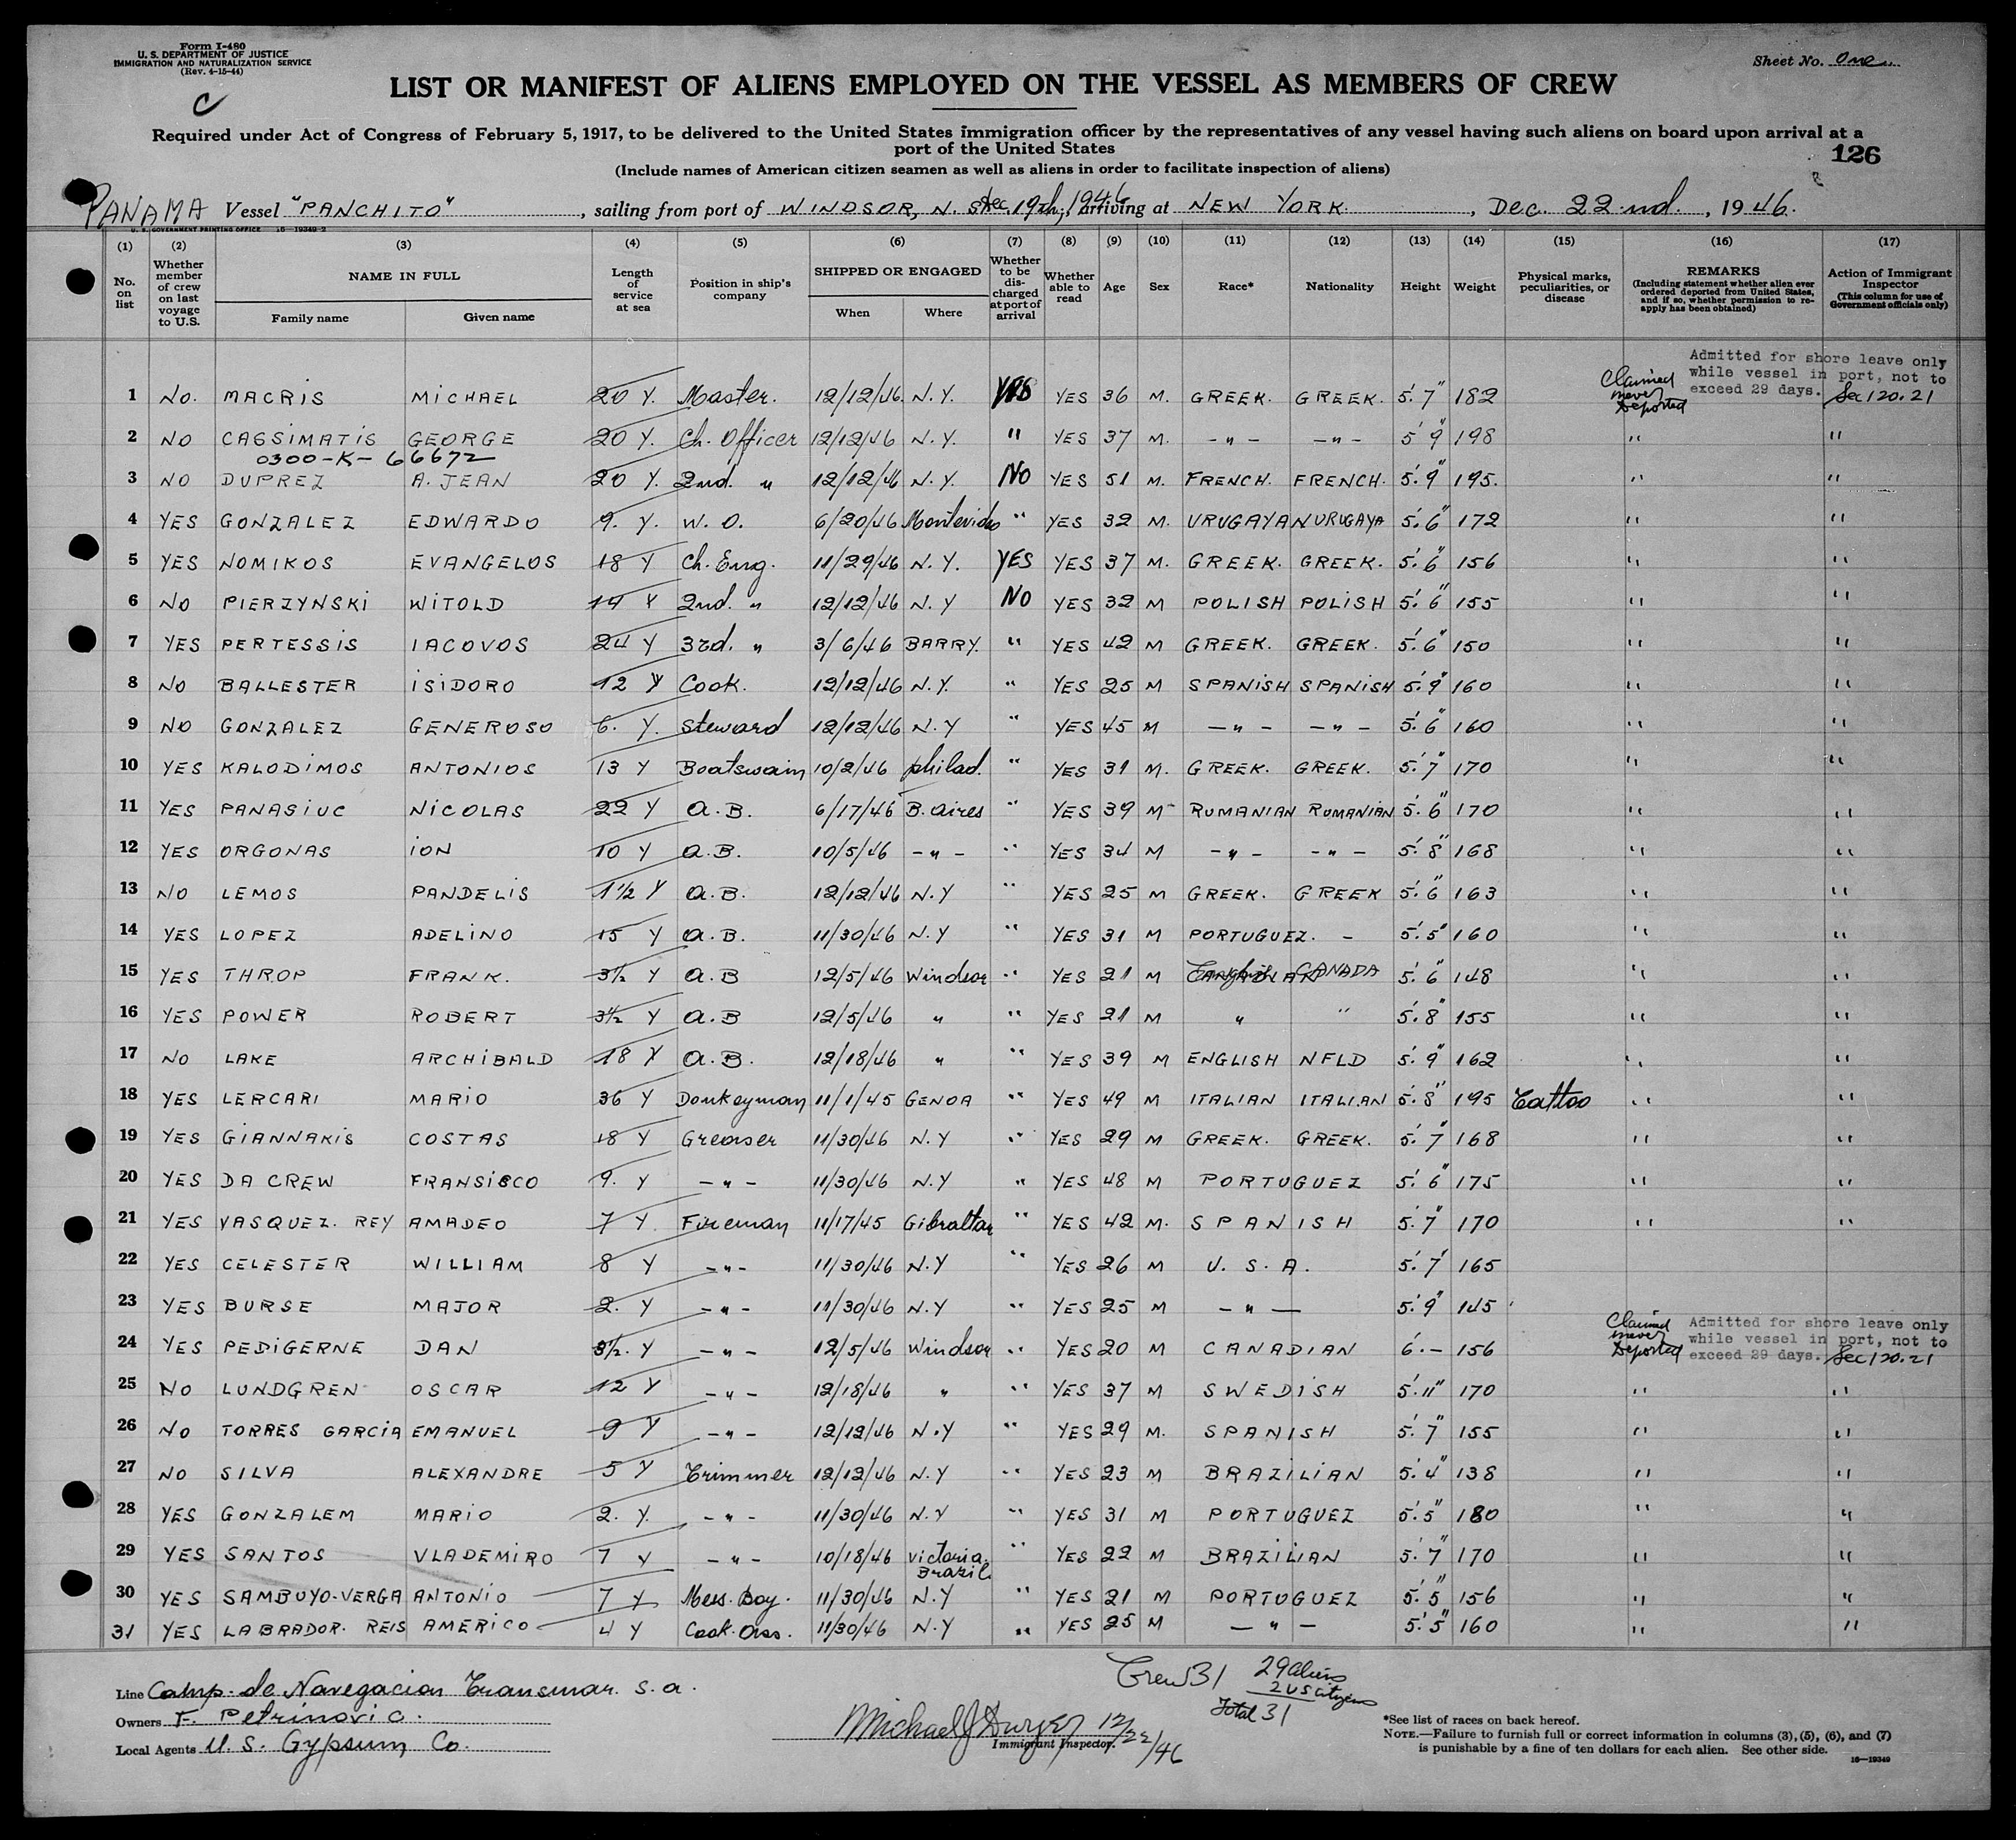 Form I-480
U. S. DEPARTMENT OF JUSTICE
IMMIGRATION AND NATURALIZATION SERVICE
(Rev. 4-15-44)
Sheet No. One
C
LIST OR MANIFEST OF ALIENS EMPLOYED ON THE VESSEL AS MEMBERS OF CREW
Required under Act of Congress of February 5, 1917, to be delivered to the United States immigration officer by the representatives of any vessel having such aliens on board upon arrival at a
port of the United States
126
(Include names of American citizen seamen as well as aliens in order to facilitate inspection of aliens)
PANAMA Vessel "PANCHITO", sailing from port of WINDSOR, N. S. Dec. 19th, 1946, arriving at NEW YORK, Dec. 22nd., 1946.
U. S. GOVERNMENT PRINTING OFFICE 16—19349-2
(1) (2) (3) (4) (5) (6) (7) (8) (9) (10) (11) (12) (13) (14) (15) (16) (17)
No. on list
Whether member of crew on last voyage to U.S.
NAME IN FULL
Family name Given name
Length of service at sea
Position in ship's company
SHIPPED OR ENGAGED
When Where
Whether to be discharged at port of arrival
Whether able to read
Age
Sex
Race*
Nationality
Height
Weight
Physical marks, peculiarities, or disease
REMARKS
(Including statement whether alien ever ordered deported from United States, and if so, whether permission to reapply has been obtained)
Action of Immigrant Inspector
(This column for use of Government officials only)
Admitted for shore leave only
while vessel in port, not to
exceed 29 days. Sec 120.21
Claimed never Deported
1 No. MACRIS MICHAEL 20 Y. Master. 12/12/46 N.Y. YES YES 36 M. GREEK. GREEK. 5' 7" 182
2 NO CASSIMATIS GEORGE 20 Y. Ch. Officer 12/12/46 N.Y. " YES 37 M. -"- -"- 5' 9" 198 " "
0300-K-66672
3 NO DUPREZ A. JEAN 20 Y. 2nd. " 12/12/46 N.Y. NO YES 51 M. FRENCH. FRENCH. 5'. 9" 195. " "
4 YES GONZALEZ EDWARDO 9. Y. W. O. 6/20/46 Montevideo " YES 32 M. URUGAYAN URUGAYA 5'. 6" 172 " "
5 YES NOMIKOS EVANGELOS 18 Y Ch. Eng. 11/29/46 N.Y. YES YES 37 M. GREEK. GREEK. 5'. 6" 156 " "
6 NO PIERZYNSKI WITOLD 14 Y 2nd. " 12/12/46 N.Y NO YES 32 M POLISH POLISH 5'. 6" 155 " "
7 YES PERTESSIS IACOVOS 24 Y 3rd. " 3/6/46 BARRY. " YES 42 M GREEK. GREEK. 5'. 6" 150 " "
8 NO BALLESTER ISIDORO 12 Y Cook. 12/12/46 N.Y. " YES 25 M SPANISH SPANISH 5'. 9" 160 " "
9 NO GONZALEZ GENEROSO 6. Y. Steward 12/12/46 N.Y " YES 45 M -"- -"- 5'. 6" 160 " "
10 YES KALODIMOS ANTONIOS 13 Y Boatswain 10/2/46 philad. " YES 31 M. GREEK. GREEK. 5'. 7" 170 " "
11 YES PANASIUC NICOLAS 22 Y A.B. 6/17/46 B. Aires " YES 39 M RUMANIAN RUMANIAN 5'. 6" 170 " "
12 YES ORGONAS ION 10 Y A.B. 10/5/46 -"- " YES 34 M -"- -"- 5'. 8" 168 " "
13 NO LEMOS PANDELIS 1 1/2 Y A.B. 12/12/46 N.Y " YES 25 M GREEK. GREEK 5'. 6" 163 " "
14 YES LOPEZ ADELINO 15 Y A.B. 11/30/46 N.Y " YES 31 M PORTUGUEZ. - 5'. 5" 160 " "
15 YES THROP FRANK. 3 1/2 Y A.B 12/5/46 Windsor " YES 21 M English CANADA 5'. 6" 148 " "
16 YES POWER ROBERT 3 1/2 Y A.B 12/5/46 " " YES 21 M " " 5'. 8" 155 " "
17 NO LAKE ARCHIBALD 18 Y A.B. 12/18/46 " " YES 39 M ENGLISH NFLD 5'. 9" 162 " "
18 YES LERCARI MARIO 36 Y Donkeyman 11/1/45 GENOA " YES 49 M ITALIAN ITALIAN 5'. 8" 195 Tattoo " "
19 YES GIANNAKIS COSTAS 18 Y Greaser 11/30/46 N.Y " YES 29 M GREEK. GREEK. 5'. 7" 168 " "
20 YES DA CREW FRANSISCO 9. Y -"- 11/30/46 N.Y " YES 48 M PORTUGUEZ 5'. 6" 175 " "
21 YES VASQUEZ. REY AMADEO 7 Y Fireman 11/17/45 Gibraltar " YES 42 M. SPANISH 5'. 7" 170 " "
22 YES CELESTER WILLIAM 8 Y -"- 11/30/46 N.Y " YES 26 M U. S. A. 5'. 7' 165
23 YES BURSE MAJOR 2. Y -"- 11/30/46 N.Y " YES 25 M -"- 5'. 9" 145
Claimed never Deported
Admitted for shore leave only
while vessel in port, not to
exceed 29 days. Sec 120.21
24 YES PEDIGERNE DAN 3 1/2. Y -"- 12/5/46 Windsor " YES 20 M CANADIAN 6'.- 156
25 NO LUNDGREN OSCAR 12 Y -"- 12/18/46 " " YES 37 M SWEDISH 5'. 11" 170 " "
26 NO TORRES GARCIA EMANUEL 9 Y -"- 12/12/46 N.Y " YES 29 M. SPANISH 5'. 7" 155 " "
27 NO SILVA ALEXANDRE 5 Y Trimmer 12/12/46 N.Y " YES 23 M BRAZILIAN 5'. 4" 138 " "
28 YES GONZALEM MARIO 2. Y. -"- 11/30/46 N.Y " YES 31 M PORTUGUEZ 5'. 5" 180 " "
29 YES SANTOS VLADEMIRO 7 Y -"- 10/18/46 Victoria. Brazil " YES 22 M BRAZILIAN 5'. 7" 170 " "
30 YES SAMBUYO-VERGA ANTONIO 7 Y Mess. Boy. 11/30/46 N.Y " YES 21 M PORTUGUEZ 5'. 5" 156 " "
31 YES LABRADOR. REIS AMERICO 4 Y Cook. Ass. 11/30/46 N.Y " YES 25 M -"- 5'. 5" 160 " "
Line Comp. de Navegacion Transmar. S. a.
Owners F. Petrinovic.
Local Agents U. S. Gypsum Co.
Crew 31 29 aliens
2 US citizens
Total 31
Michael J 12/22/46
Immigrant Inspector.
*See list of races on back hereof.
NOTE.—Failure to furnish full or correct information in columns (3), (5), (6), and (7)
is punishable by a fine of ten dollars for each alien. See other side.
16—19349